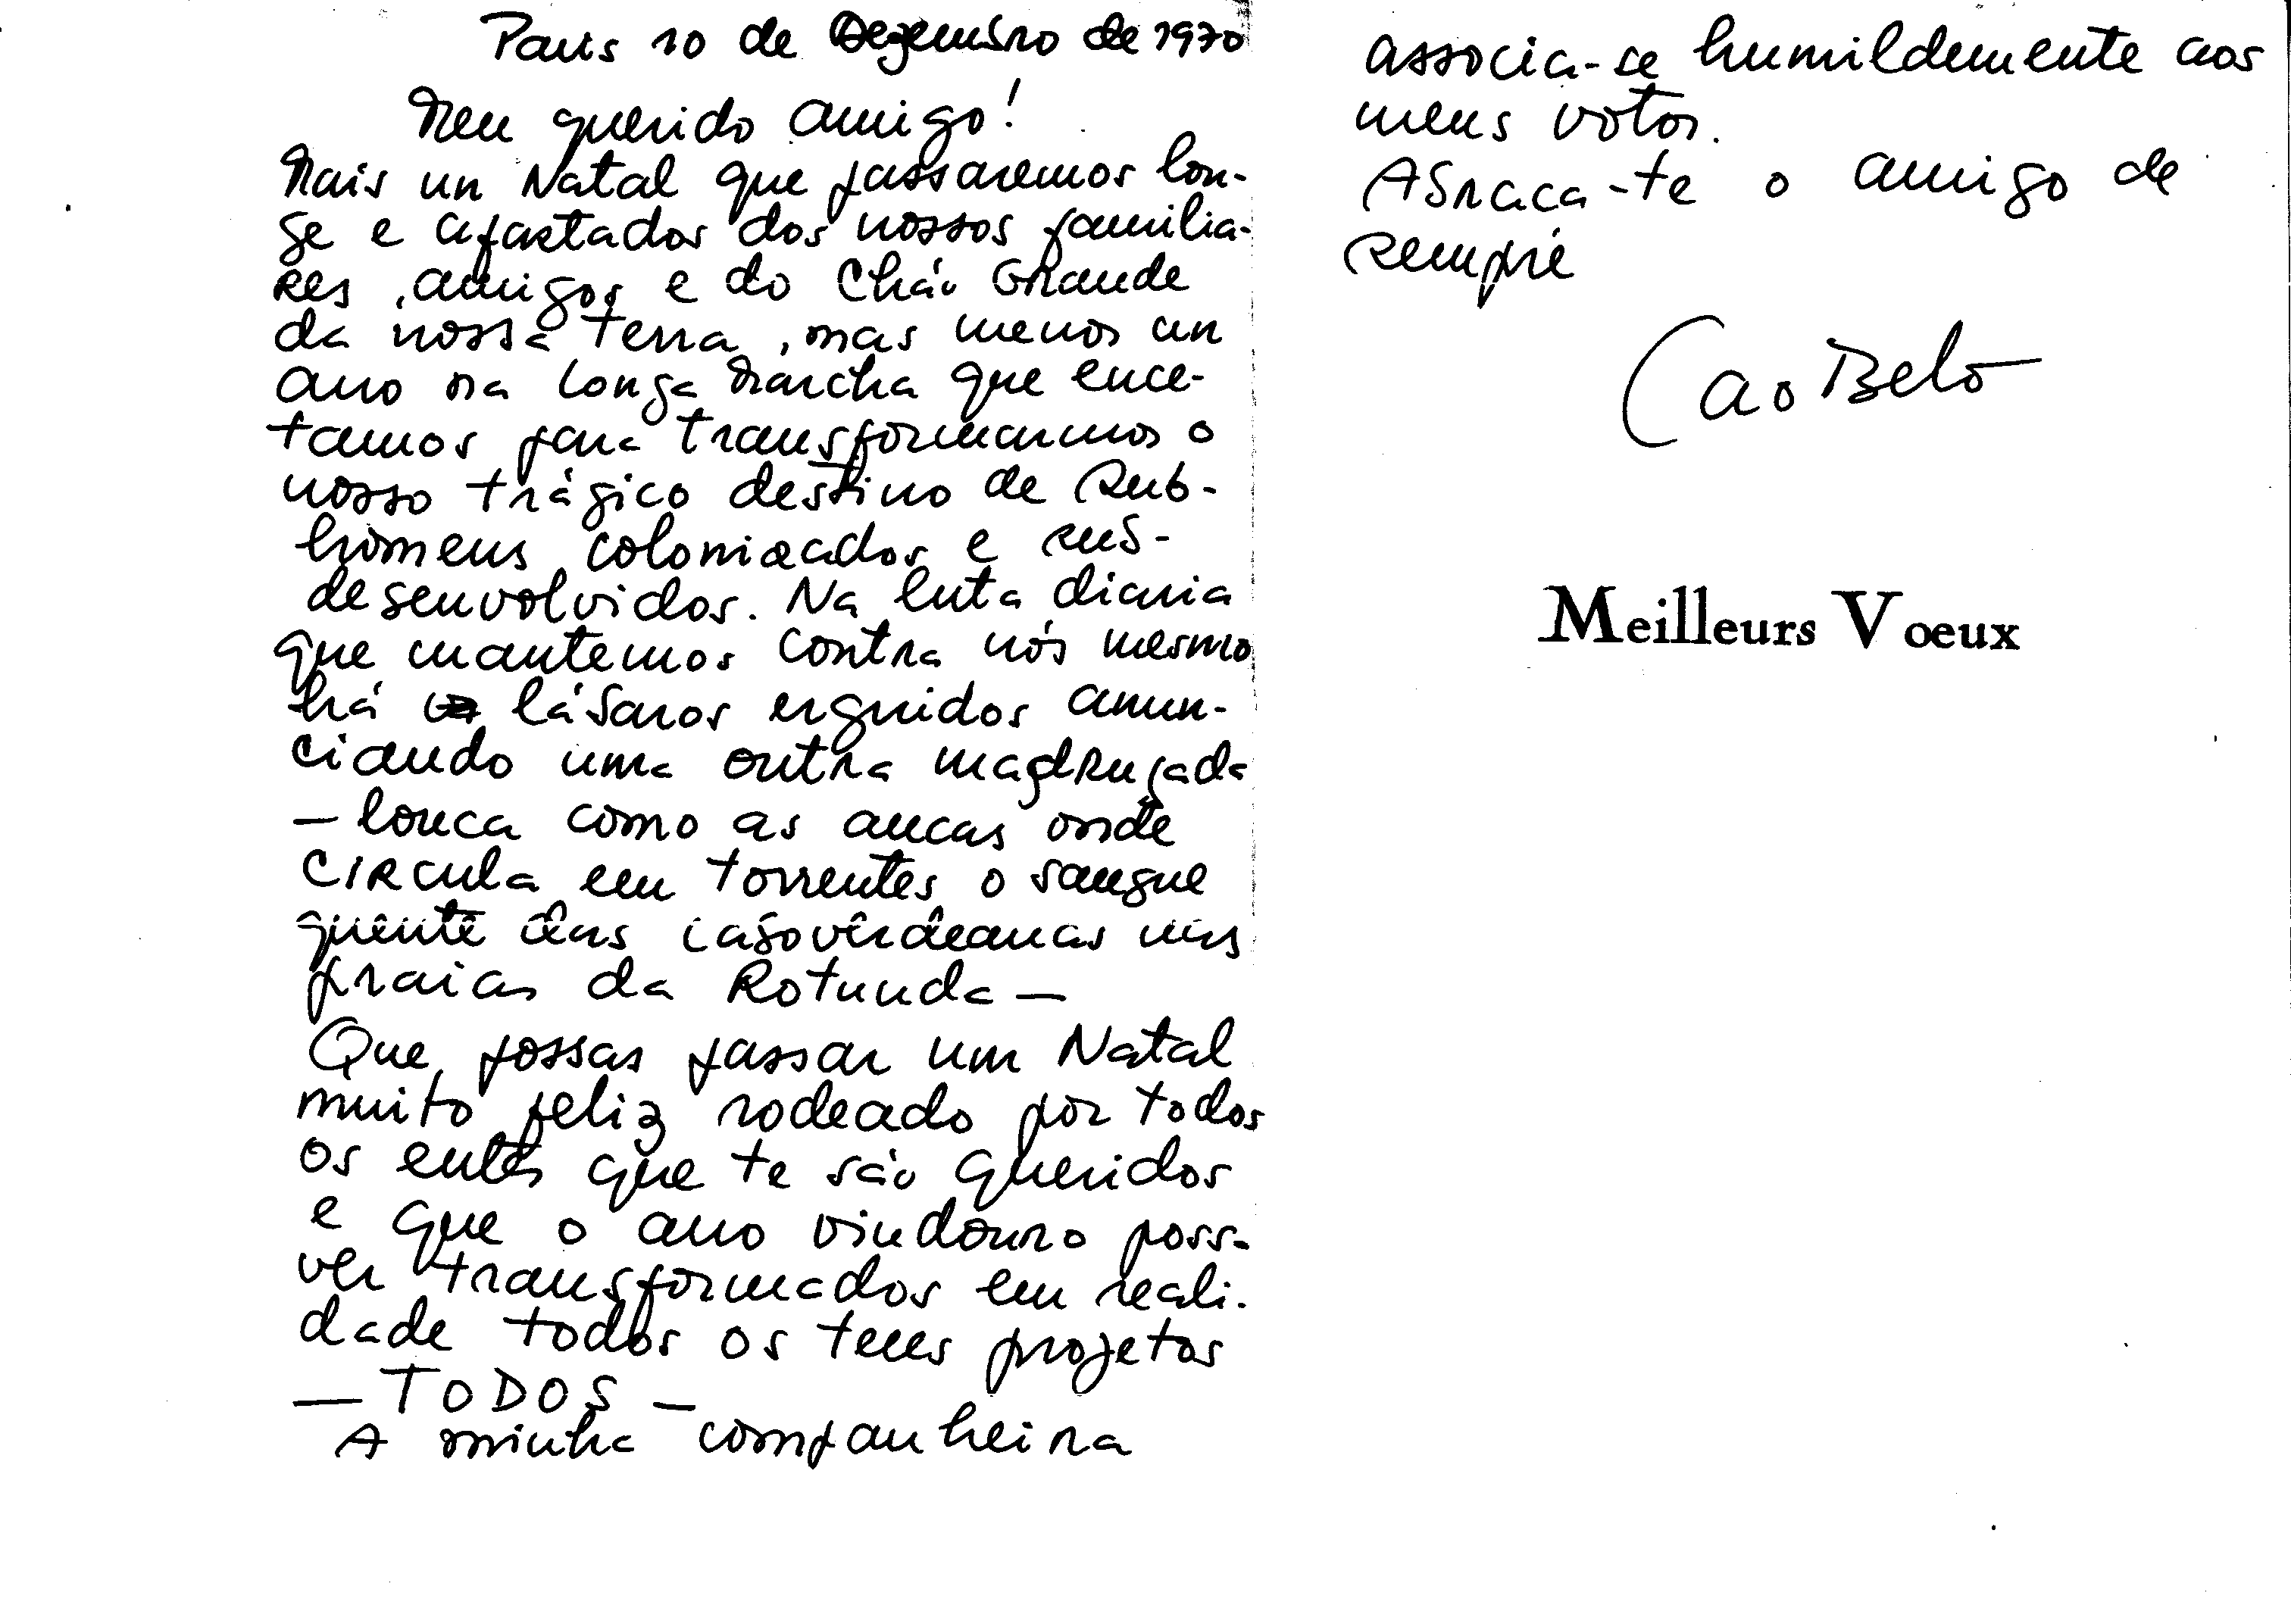 Paris 10 de Dezembro de 1970
Meu querido amigo!
Mais un Natal que passaremos lon-
ge e afastados dos nossos familia-
res, amigos e do Chão Grande
da nossa terra, mas menos un
ano na longa Marcha que ence-
tamos para transformarmos o
nosso trágico destino de sub-
homens colonizados e sub-
desenvolvidos. Na luta diaria
que mantemos contra nós mesmo
há lásaros erguidos anun-
ciando uma outra madrugada
— louca como as ancas onde
circula em torrentes o sangue
quente das caboverdeanas nas
praias da Rotunda —
Que possas passar um Natal
muito feliz rodeado por todos
os entes que te são queridos
e que o ano vindouro possa
ver transformados em reali-
dade todos os teus projetos
— TODOS —
A minha companheira
associa-se humildemente aos
meus votos.
Abraca-te o amigo de
sempre
Meilleurs Vœux